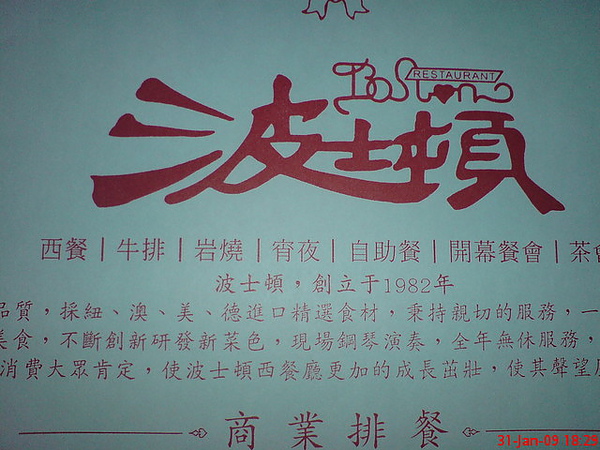 Boston
RESTAURANT
波士頓
西餐|牛排|岩燒|宵夜|自助餐|開幕餐會|茶會
波士頓，創立于1982年
品質，採紐、澳、美、德進口精選食材，秉持親切的服務，一
美食，不斷創新研發新菜色，現場鋼琴演奏，全年無休服務，
消費大眾肯定，使波士頓西餐廳更加的成長茁壯，使其聲望
商業排餐
31-Jan-09 18:29